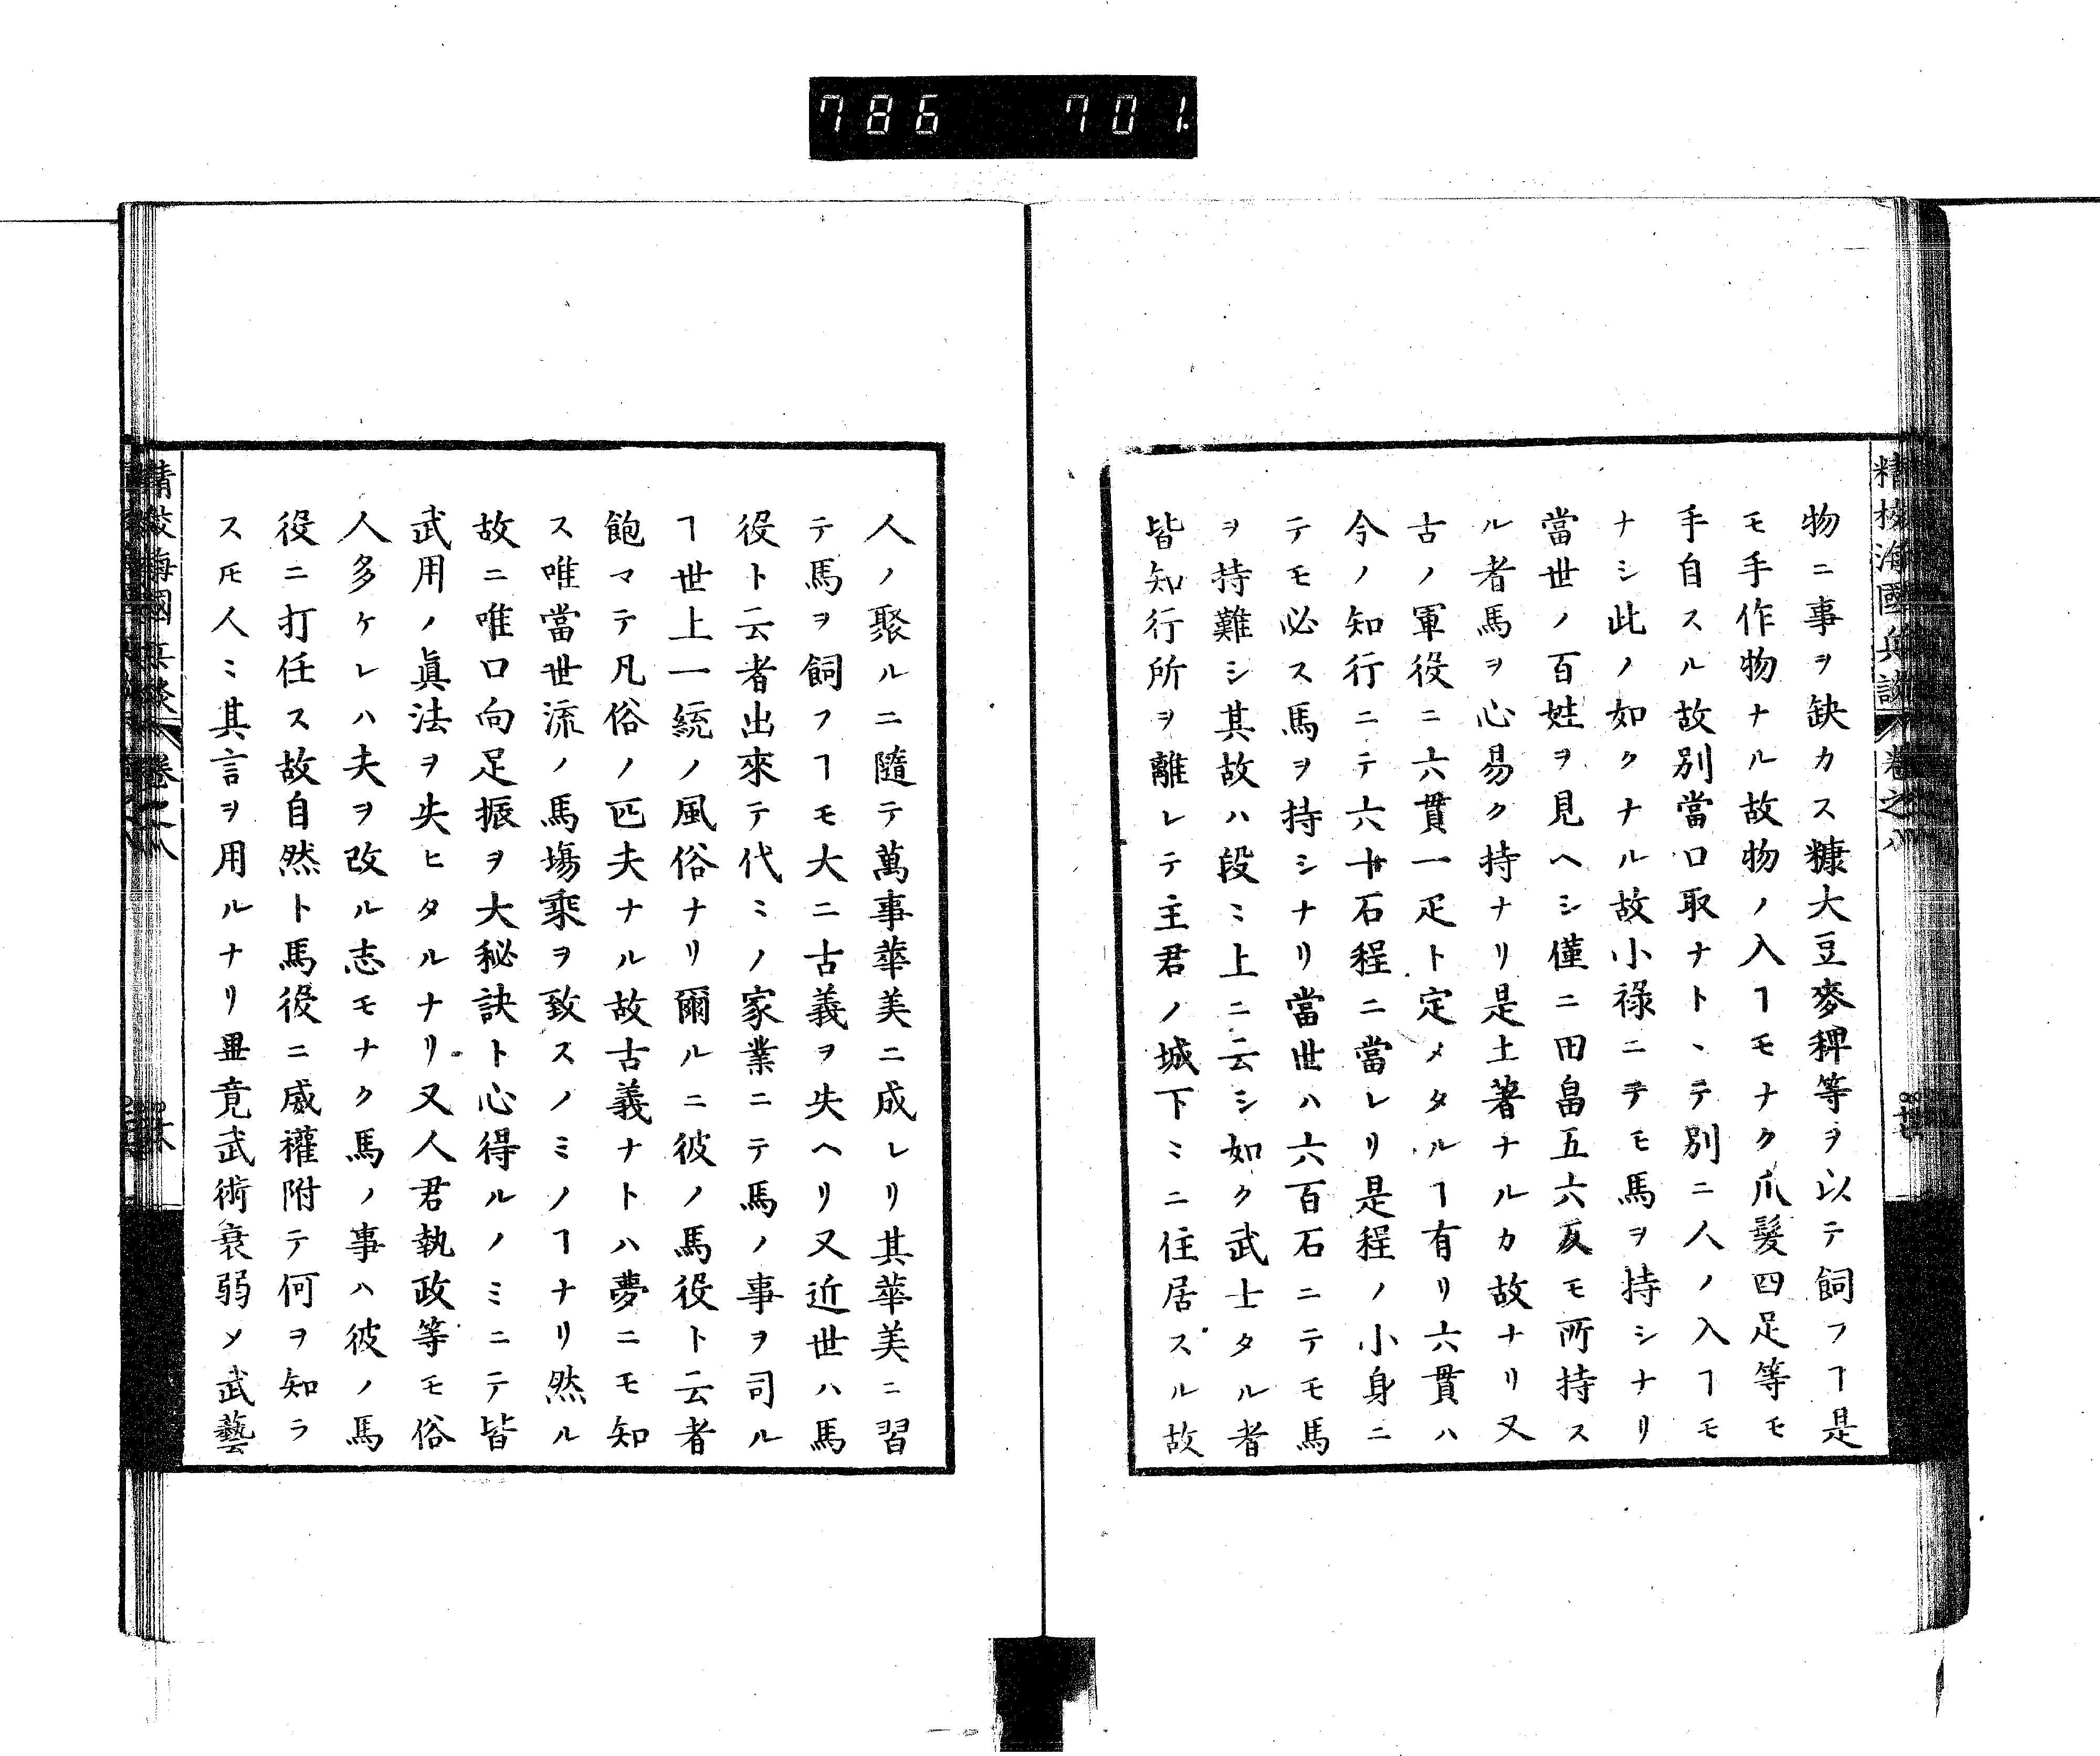 786 701
精校海國兵談 卷之八
物ニ事ヲ缺カス糠大豆麥稗等ヲ以テ飼フヿ是
モ手作物ナル故物ノ入ヿモナク爪髮四足等モ
手自スル故別當口取ナト丶テ別ニ人ノ入ヿモ
ナシ此ノ如クナル故小祿ニテモ馬ヲ持シナリ
當世ノ百姓ヲ見ヘシ僅ニ田畠五六反モ所持ス
ル者馬ヲ心易ク持ナリ是土著ナルカ故ナリ又
古ノ軍役ニ六貫一疋ト定メタルヿ有リ六貫ハ
今ノ知行ニテ六十石程ニ當レリ是程ノ小身ニ
テモ必ス馬ヲ持シナリ當世ハ六百石ニテモ馬
ヲ持難シ其故ハ段ミ上ニ云シ如ク武士タル者
皆知行所ヲ離レテ主君ノ城下ミニ住居スル故
人ノ聚ルニ隨テ萬事華美ニ成レリ其華美ニ習
テ馬ヲ飼フヿモ大ニ古義ヲ失ヘリ又近世ハ馬
役ト云者出來テ代ミノ家業ニテ馬ノ事ヲ司ル
ヿ世上一統ノ風俗ナリ爾ルニ彼ノ馬役ト云者
飽マテ凡俗ノ匹夫ナル故古義ナトハ夢ニモ知
ス唯當世流ノ馬塲乘ヲ致スノミノヿナリ然ル
故ニ唯口向足振ヲ大秘訣ト心得ルノミニテ皆
武用ノ眞法ヲ失ヒタルナリ又人君執政等モ俗
人多ケレハ夫ヲ改ル志モナク馬ノ事ハ彼ノ馬
役ニ打任ス故自然ト馬役ニ威權附テ何ヲ知ラ
スㇳモ人ミ其言ヲ用ルナリ畢竟武術衰弱メ武藝
精校海國兵談 卷之八